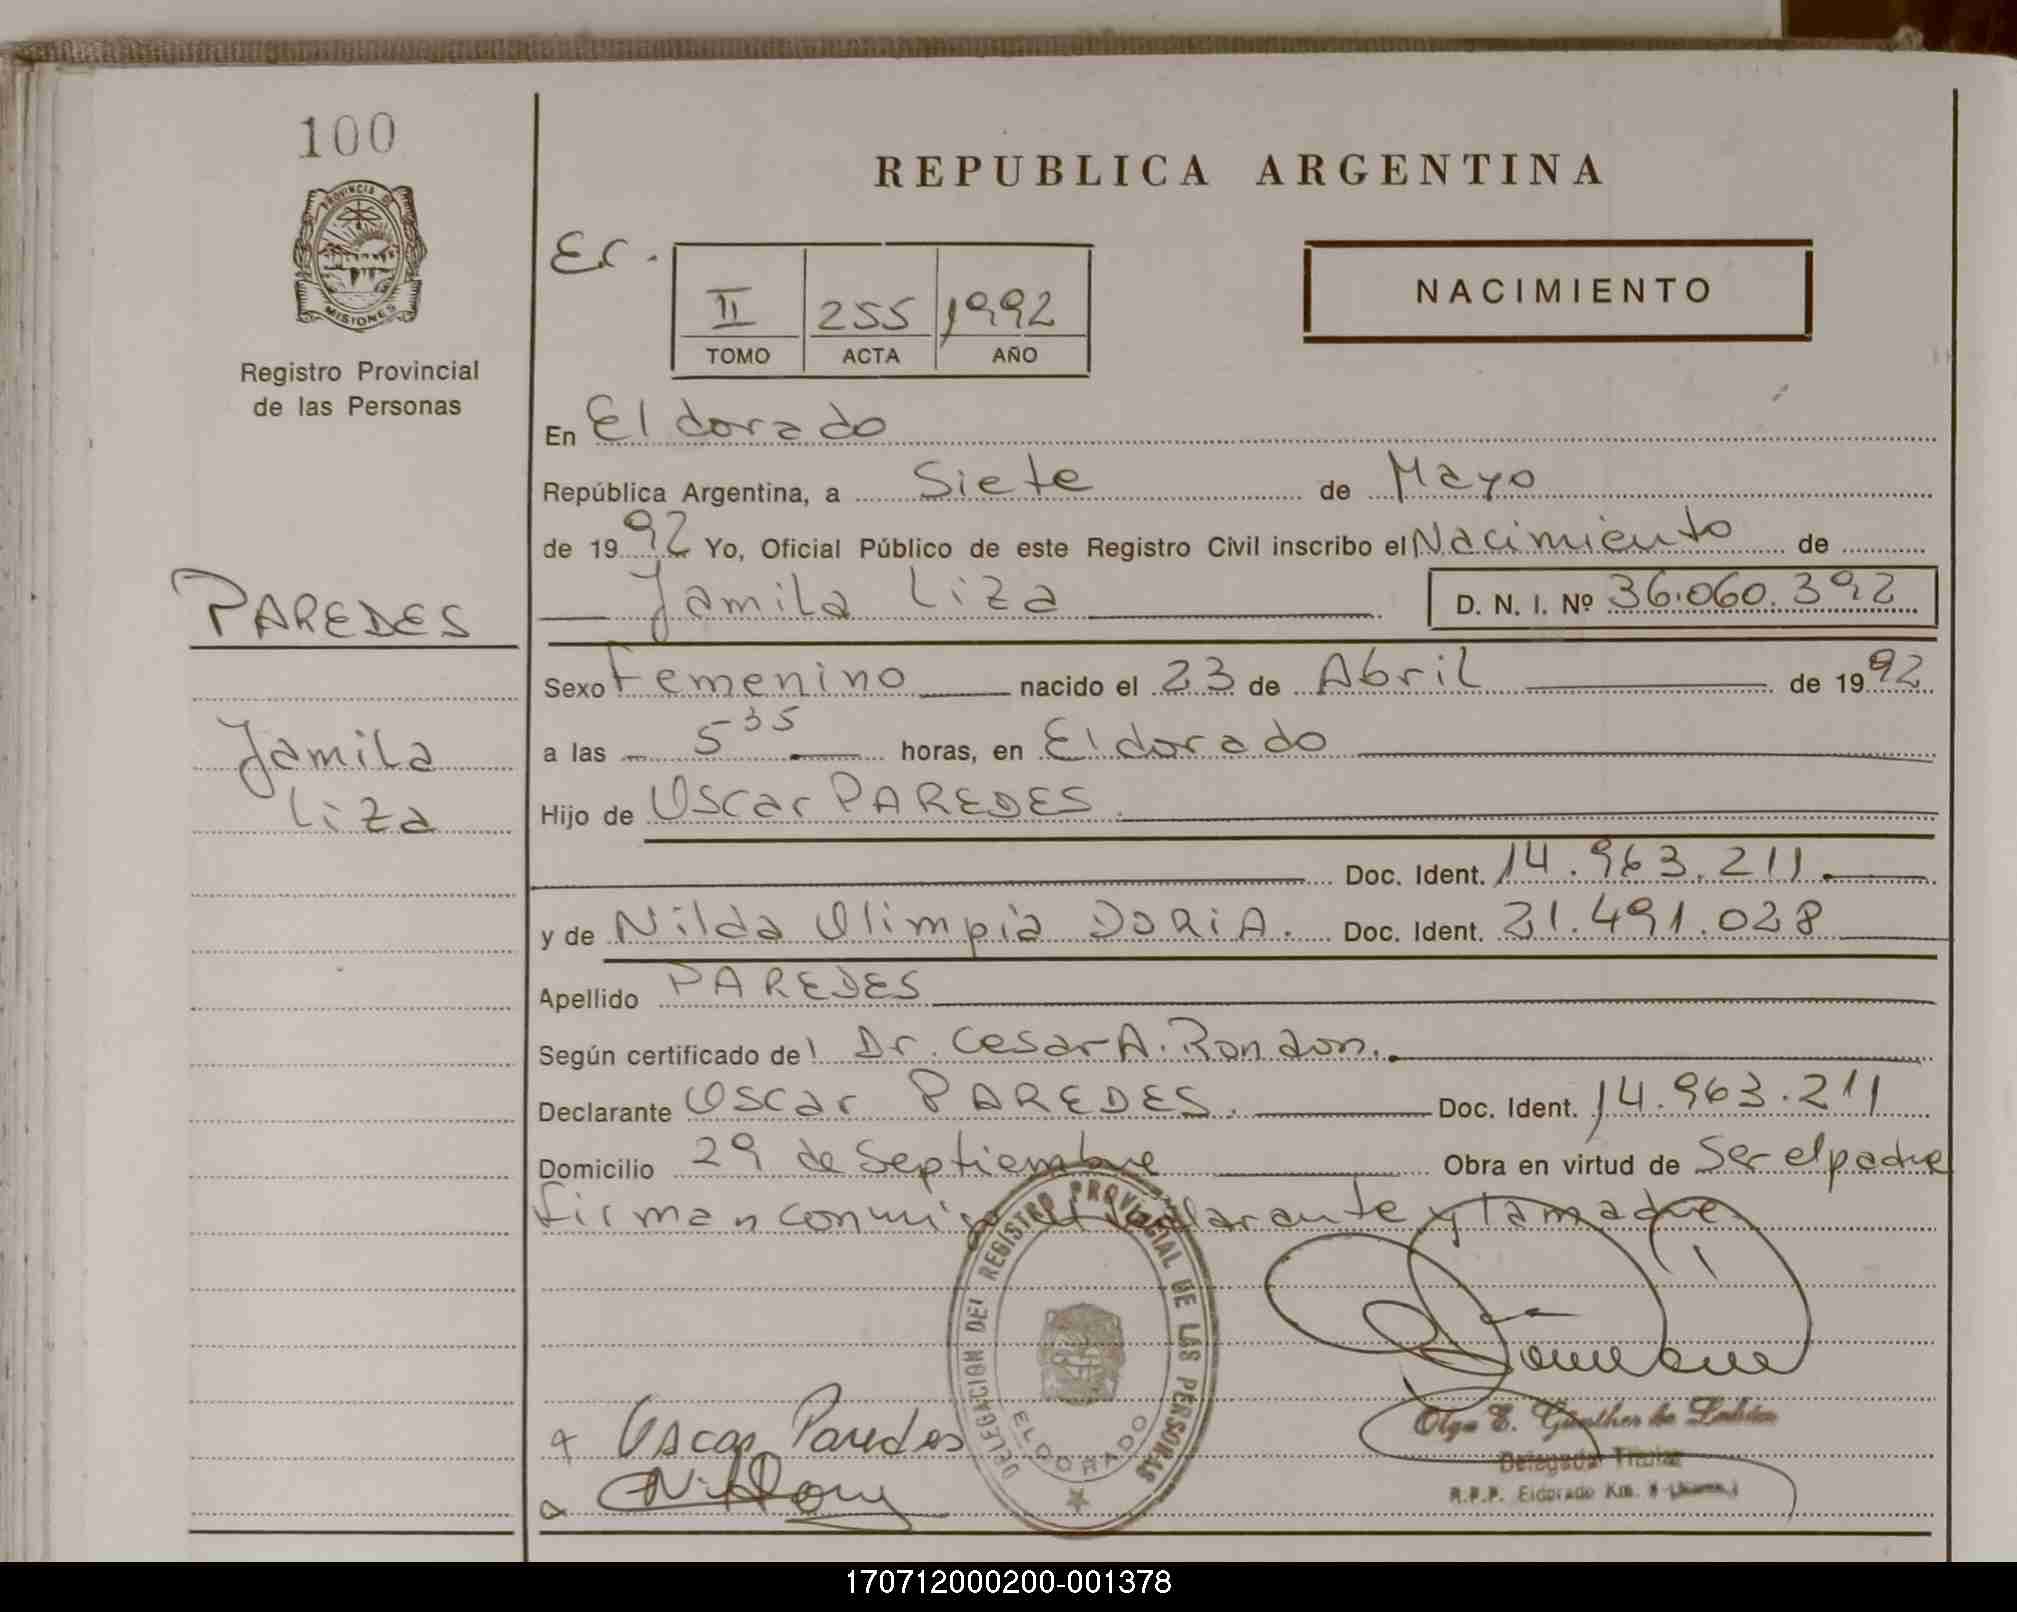 100
PROVINCIA DE
MISIONES
Registro Provincial
de las Personas
PAREDES
Jamila
Liza
REPUBLICA ARGENTINA
Er.
II 255 1992
TOMO ACTA AÑO
NACIMIENTO
En Eldorado
República Argentina, a Siete de Mayo
de 1992 Yo, Oficial Público de este Registro Civil inscribo el Nacimiento de
Jamila Liza D. N. I. Nº 36.060.392
Sexo Femenino nacido el 23 de Abril de 1992
a las 5 35 horas, en Eldorado
Hijo de Oscar PAREDES.
Doc. Ident. 14.963.211.
y de Nilda Olimpia DORIA. Doc. Ident. 21.491.028
Apellido PAREDES
Según certificado del Dr. Cesar A. Rondon.
Declarante Oscar PAREDES. Doc. Ident. 14.963.211
Domicilio 29 de Septiembre Obra en virtud de Ser el padre
firman conmigo el declarante y la madre
DELEGACION DEL REGISTRO PROVINCIAL DE LAS PERSONAS
ELDORADO
Oscar Paredes
Olga E. Günther de
Delegada Titular
R.P.P. Eldorado Km.
170712000200-001378